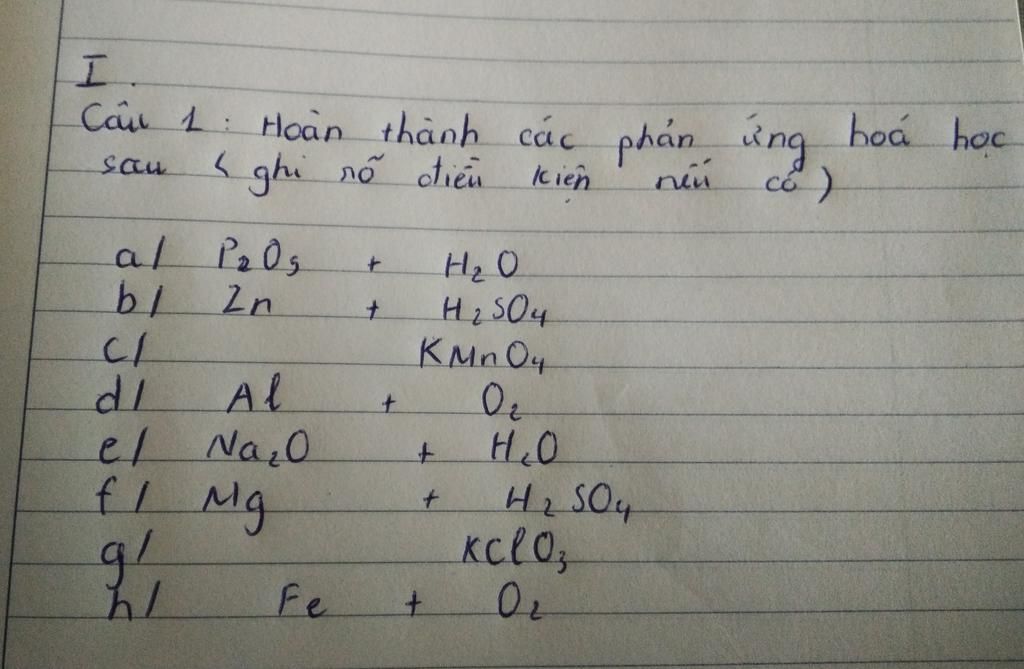 I.
Câu 1 : Hoàn thành các phản ứng hoá học
sau ( ghi rõ điều kiện nếu có )
a/ P₂O₅ + H₂O
b/ Zn + H₂SO₄
c/ KMnO₄
d/ Al + O₂
e/ Na₂O + H₂O
f/ Mg + H₂SO₄
g/ KClO₃
h/ Fe + O₂